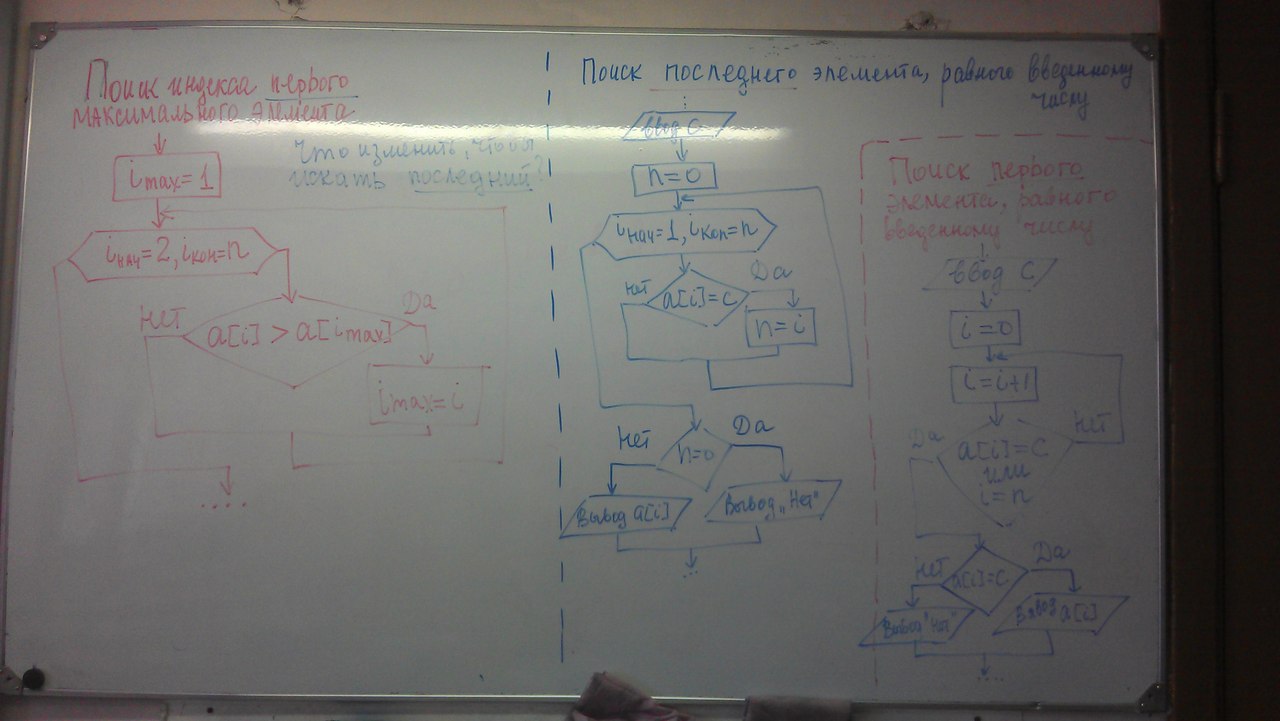 Поиск индекса первого
максимального элемента
imax=1
Что изменить, чтобы
искать последний?
iнач=2, iкон=n
Нет
a[i] > a[imax]
Да
imax=i
....
Поиск последнего элемента, равного введенному
числу
Ввод C
n=0
iнач=1, iкон=n
Нет
a[i]=C
Да
n=i
Нет
n=0
Да
Вывод a[i]
Вывод „Нет"
...
Поиск первого
элемента, равного
введенному числу
Ввод C
i=0
i=i+1
Да
a[i]=C
или
i=n
Нет
Нет
a[i]=C
Да
Вывод "Нет"
Вывод a[i]
....